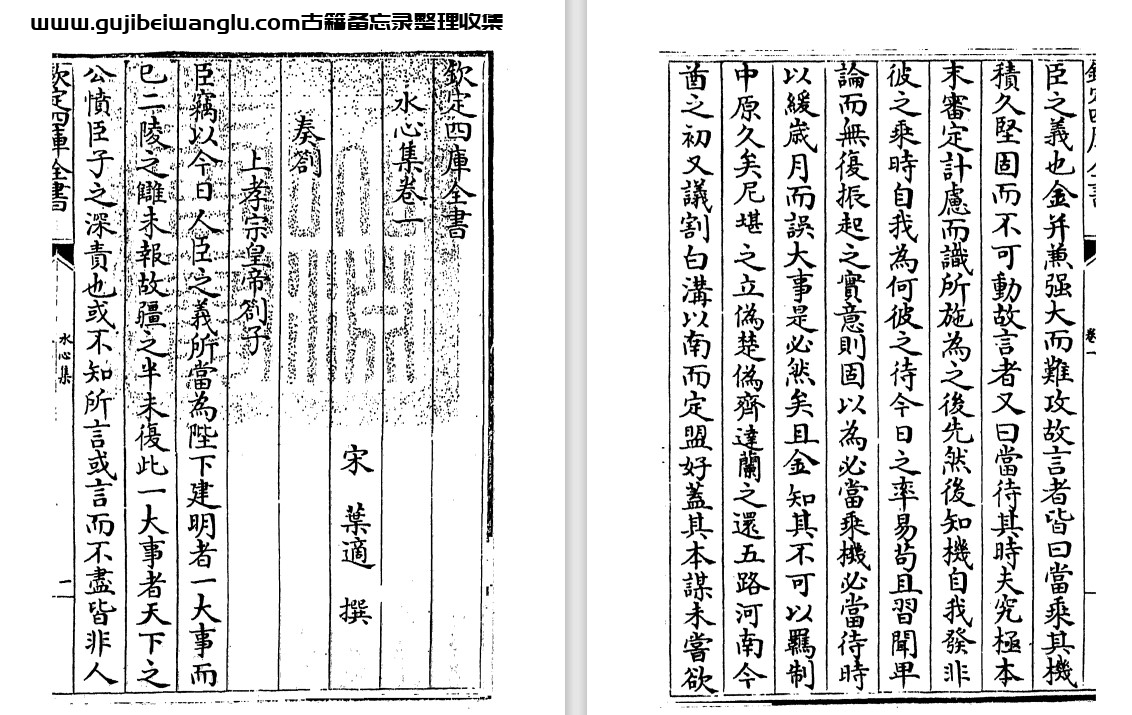 www.gujibeiwanglu.com古籍备忘录整理收集
欽定四庫全書
水心集卷一
宋 葉適 撰
奏劄
上孝宗皇帝劄子
臣竊以今日人臣之義所當為陛下建明者一大事而
已二陵之讎未報故疆之半未復此一大事者天下之
公憤臣子之深責也或不知所言或言而不盡皆非人
欽定四庫全書
水心集
一
卷一
臣之義也金并兼强大而難攻故言者皆曰當乘其機
積久堅固而不可動故言者又曰當待其時夫究極本
末審定計慮而識所施為之後先然後知機自我發非
彼之乘時自我為何彼之待今日之率易苟且習聞卑
論而無復振起之實意則固以為必當乘機必當待時
以緩歲月而誤大事是必然矣且金知其不可以羈制
中原久矣尼堪之立偽楚偽齊達蘭之還五路河南今
酋之初又議割白溝以南而定盟好蓋其本謀未嘗欲